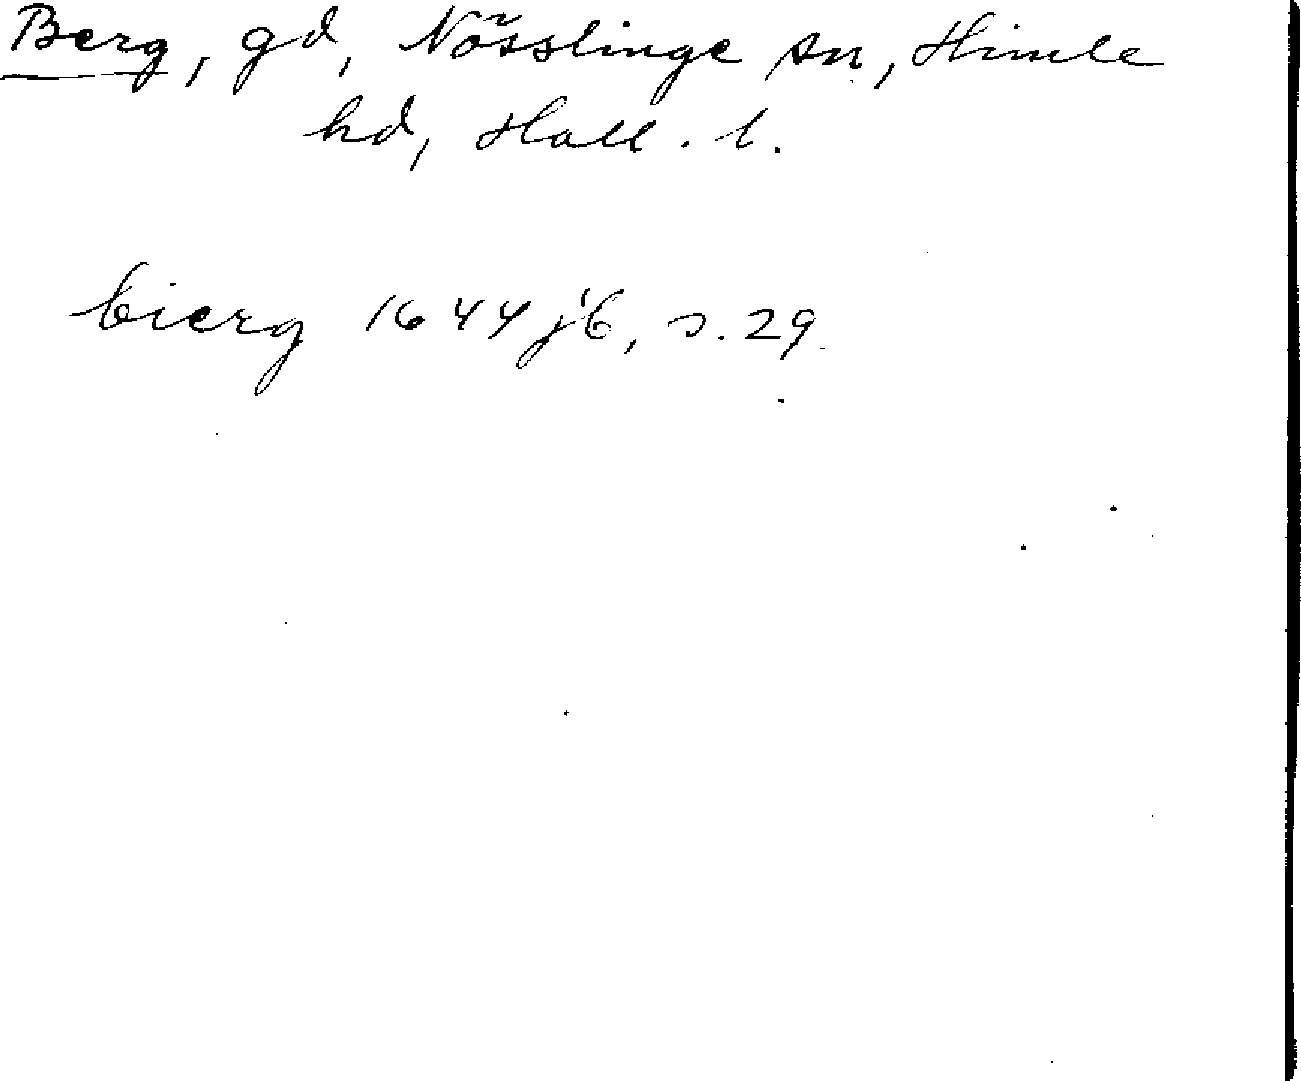 Berg, gd, Nösslinge sn, Himle
hd, Hall. l.
bierg 1644 jb, s. 29